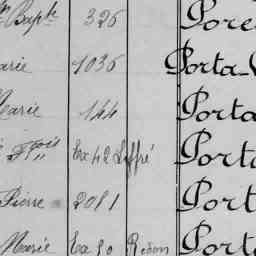 Bapt. 326 Pore
arie 1036 Porta-
Marie 144 Porta
Fçois Ex 42 Liffré Porta
Pierre 2011 Port
Marie Ex 80 Redon Porta